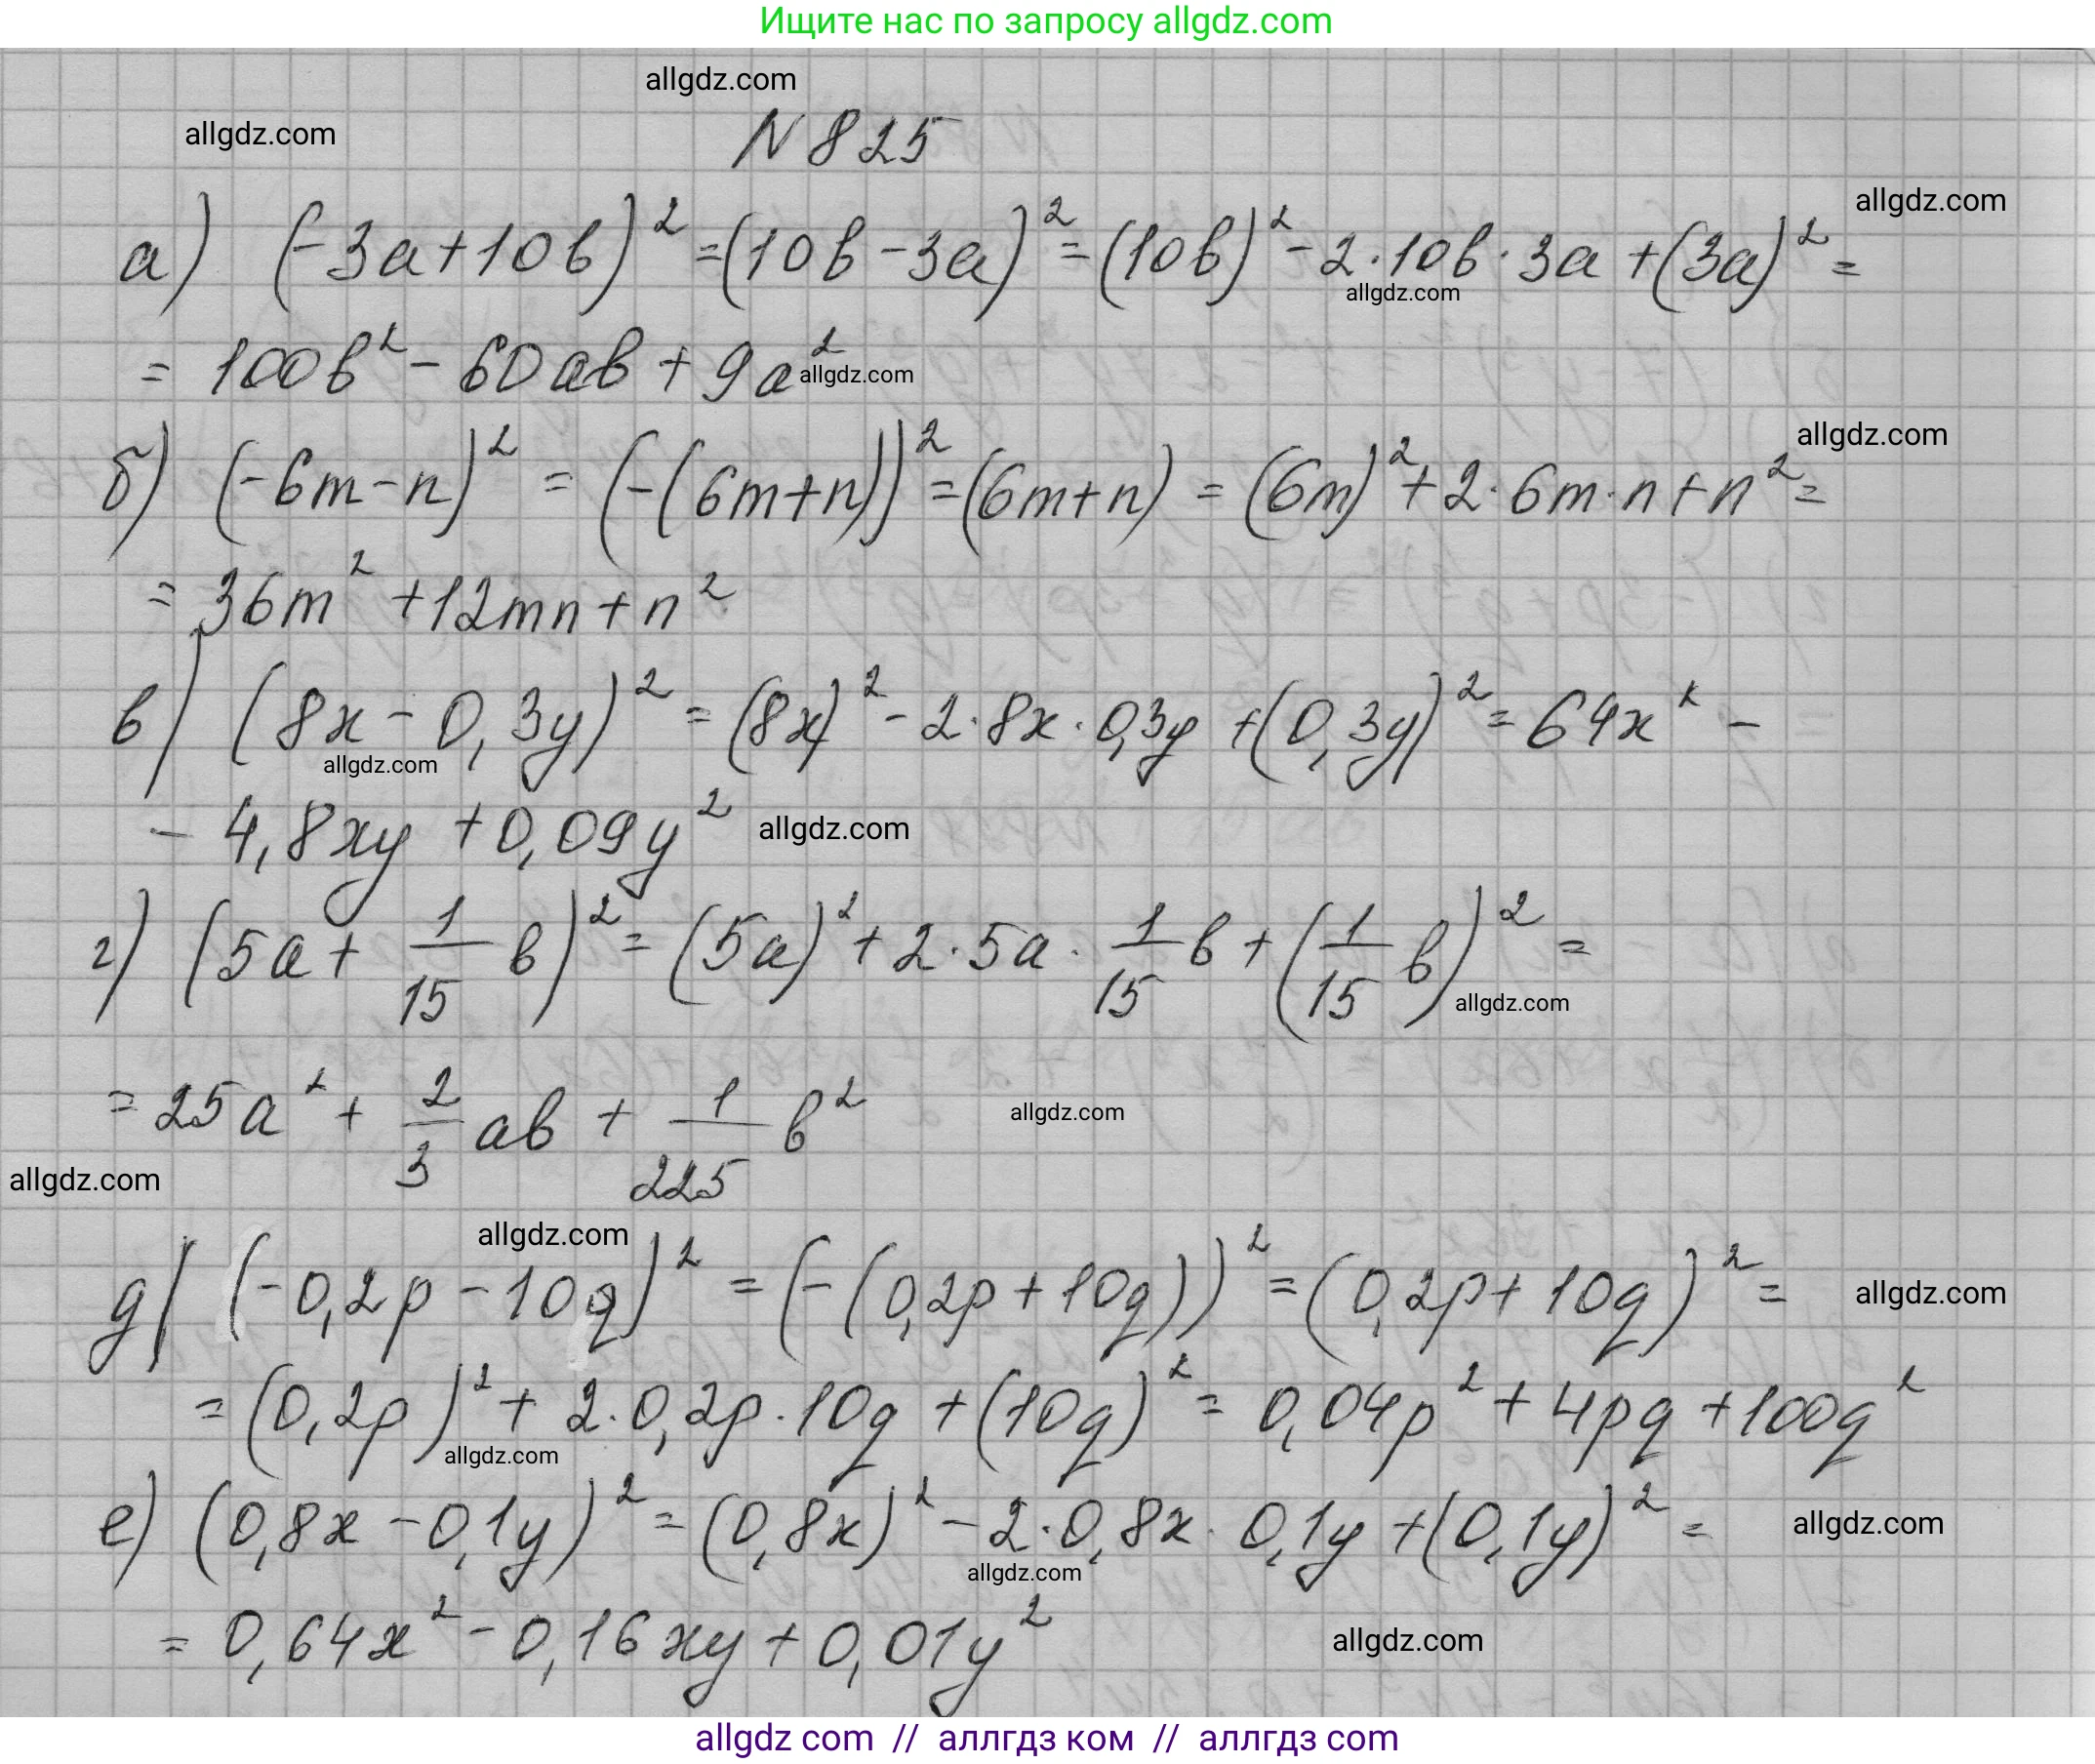 Ищите нас по запросу allgdz.com
allgdz.com
allgdz.com
N 825
allgdz.com
а) (-3a+10b)² =(10b-3a)² = (10b)² - 2·10b·3a +(3a)² =
allgdz.com
= 100b² - 60ab + 9a²
allgdz.com
allgdz.com
б) (-6m-n)² = (-(6m+n))² =(6m+n) = (6m)² + 2·6m·n+n² =
= 36m² +12mn+n²
в) (8x-0,3y)² = (8x)² - 2·8x·0,3y +(0,3y)² = 64x² -
allgdz.com
- 4,8xy +0,09y²
allgdz.com
г) (5a+ 1/15 b)² = (5a)² + 2·5a· 1/15 b+(1/15 b)² =
allgdz.com
= 25a² + 2/3 ab + 1/225 b²
allgdz.com
allgdz.com
allgdz.com
д) (-0,2p-10q)² = (-(0,2p+10q))² = (0,2p+10q)² =
allgdz.com
= (0,2p)² + 2·0,2p·10q +(10q)² = 0,04p² + 4pq +100q²
allgdz.com
е) (0,8x-0,1y)² = (0,8x)² - 2·0,8x·0,1y +(0,1y)² =
allgdz.com
allgdz.com
= 0,64x² - 0,16xy + 0,01y²
allgdz.com
allgdz com // аллгдз ком // аллгдз com